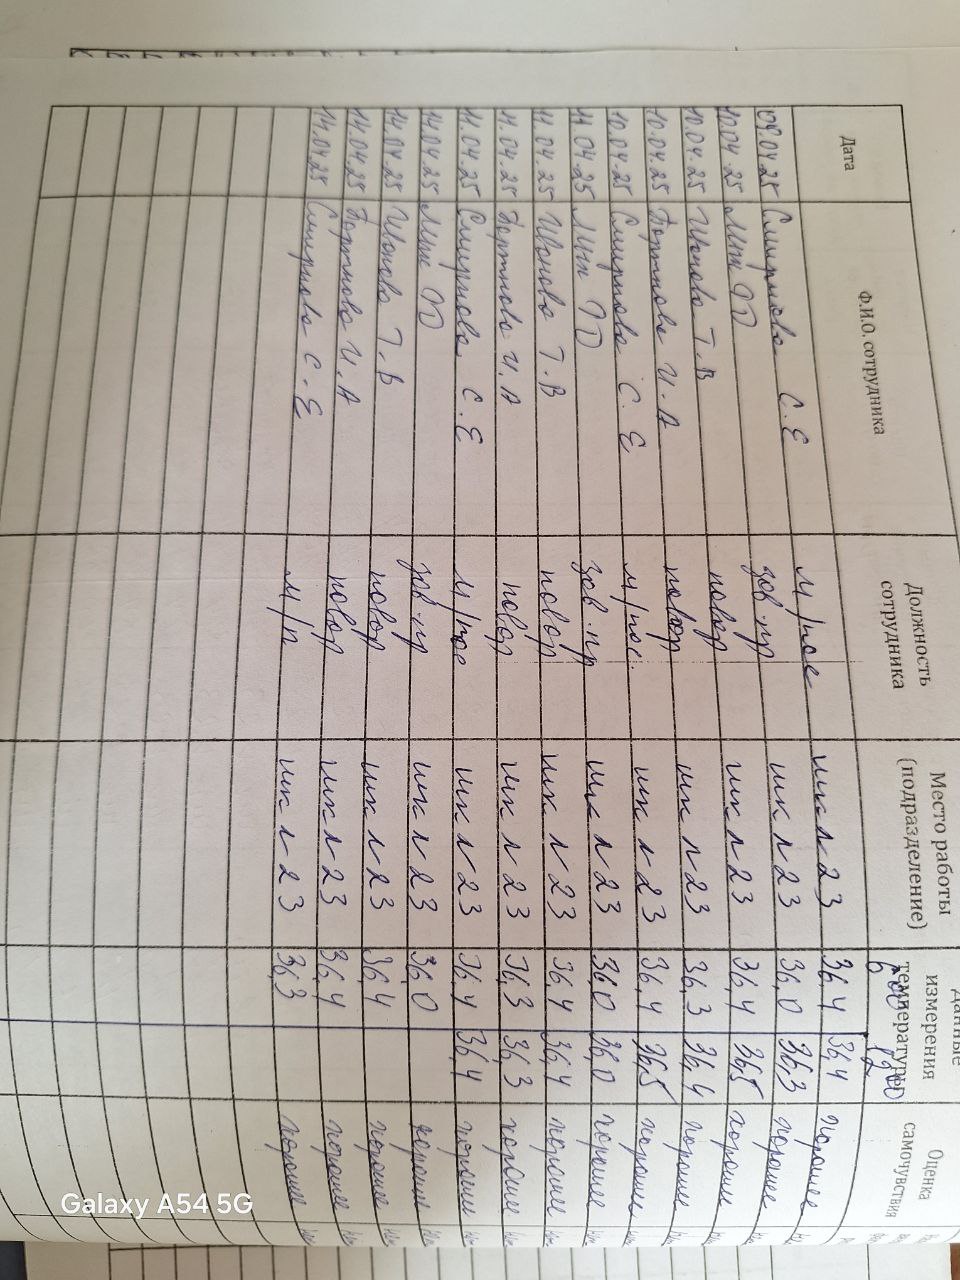 Дата Ф.И.О. сотрудника Должность сотрудника Место работы (подразделение) Данные измерения температуры Оценка самочувствия
6 00 12 00
09.04.25 Смирнова С.Е м/пос шк л 23 36,4 36,4 хорошее
10.04.25 зав.пр шк л 23 36,0 36,3 хорошее
10.04.25 Т.В повар шк л 23 36,4 36,5 хорошее
10.04.25 И.А повар шк л 23 36,3 36,4 хорошее
10.04.25 Смирнова С.Е м/пос. шк л 23 36,4 36,5 хорошее
11.04.25 зав.пр шк л 23 36,0 36,0 хорошее
11.04.25 Т.В повар шк л 23 36,4 36,4 хорошее
11.04.25 И.А повар шк л 23 36,3 36,3 хорошее
11.04.25 Смирнова С.Е м/пос шк л 23 36,4 36,4 хорошее
14.04.25 зав.пр шк л 23 36,0 хорошее
14.04.25 Т.В повар шк л 23 36,4 хорошее
14.04.25 И.А повар шк л 23 36,4 хорошее
14.04.25 Смирнова С.Е м/п шк л 23 36,3 хорошее
Galaxy A54 5G